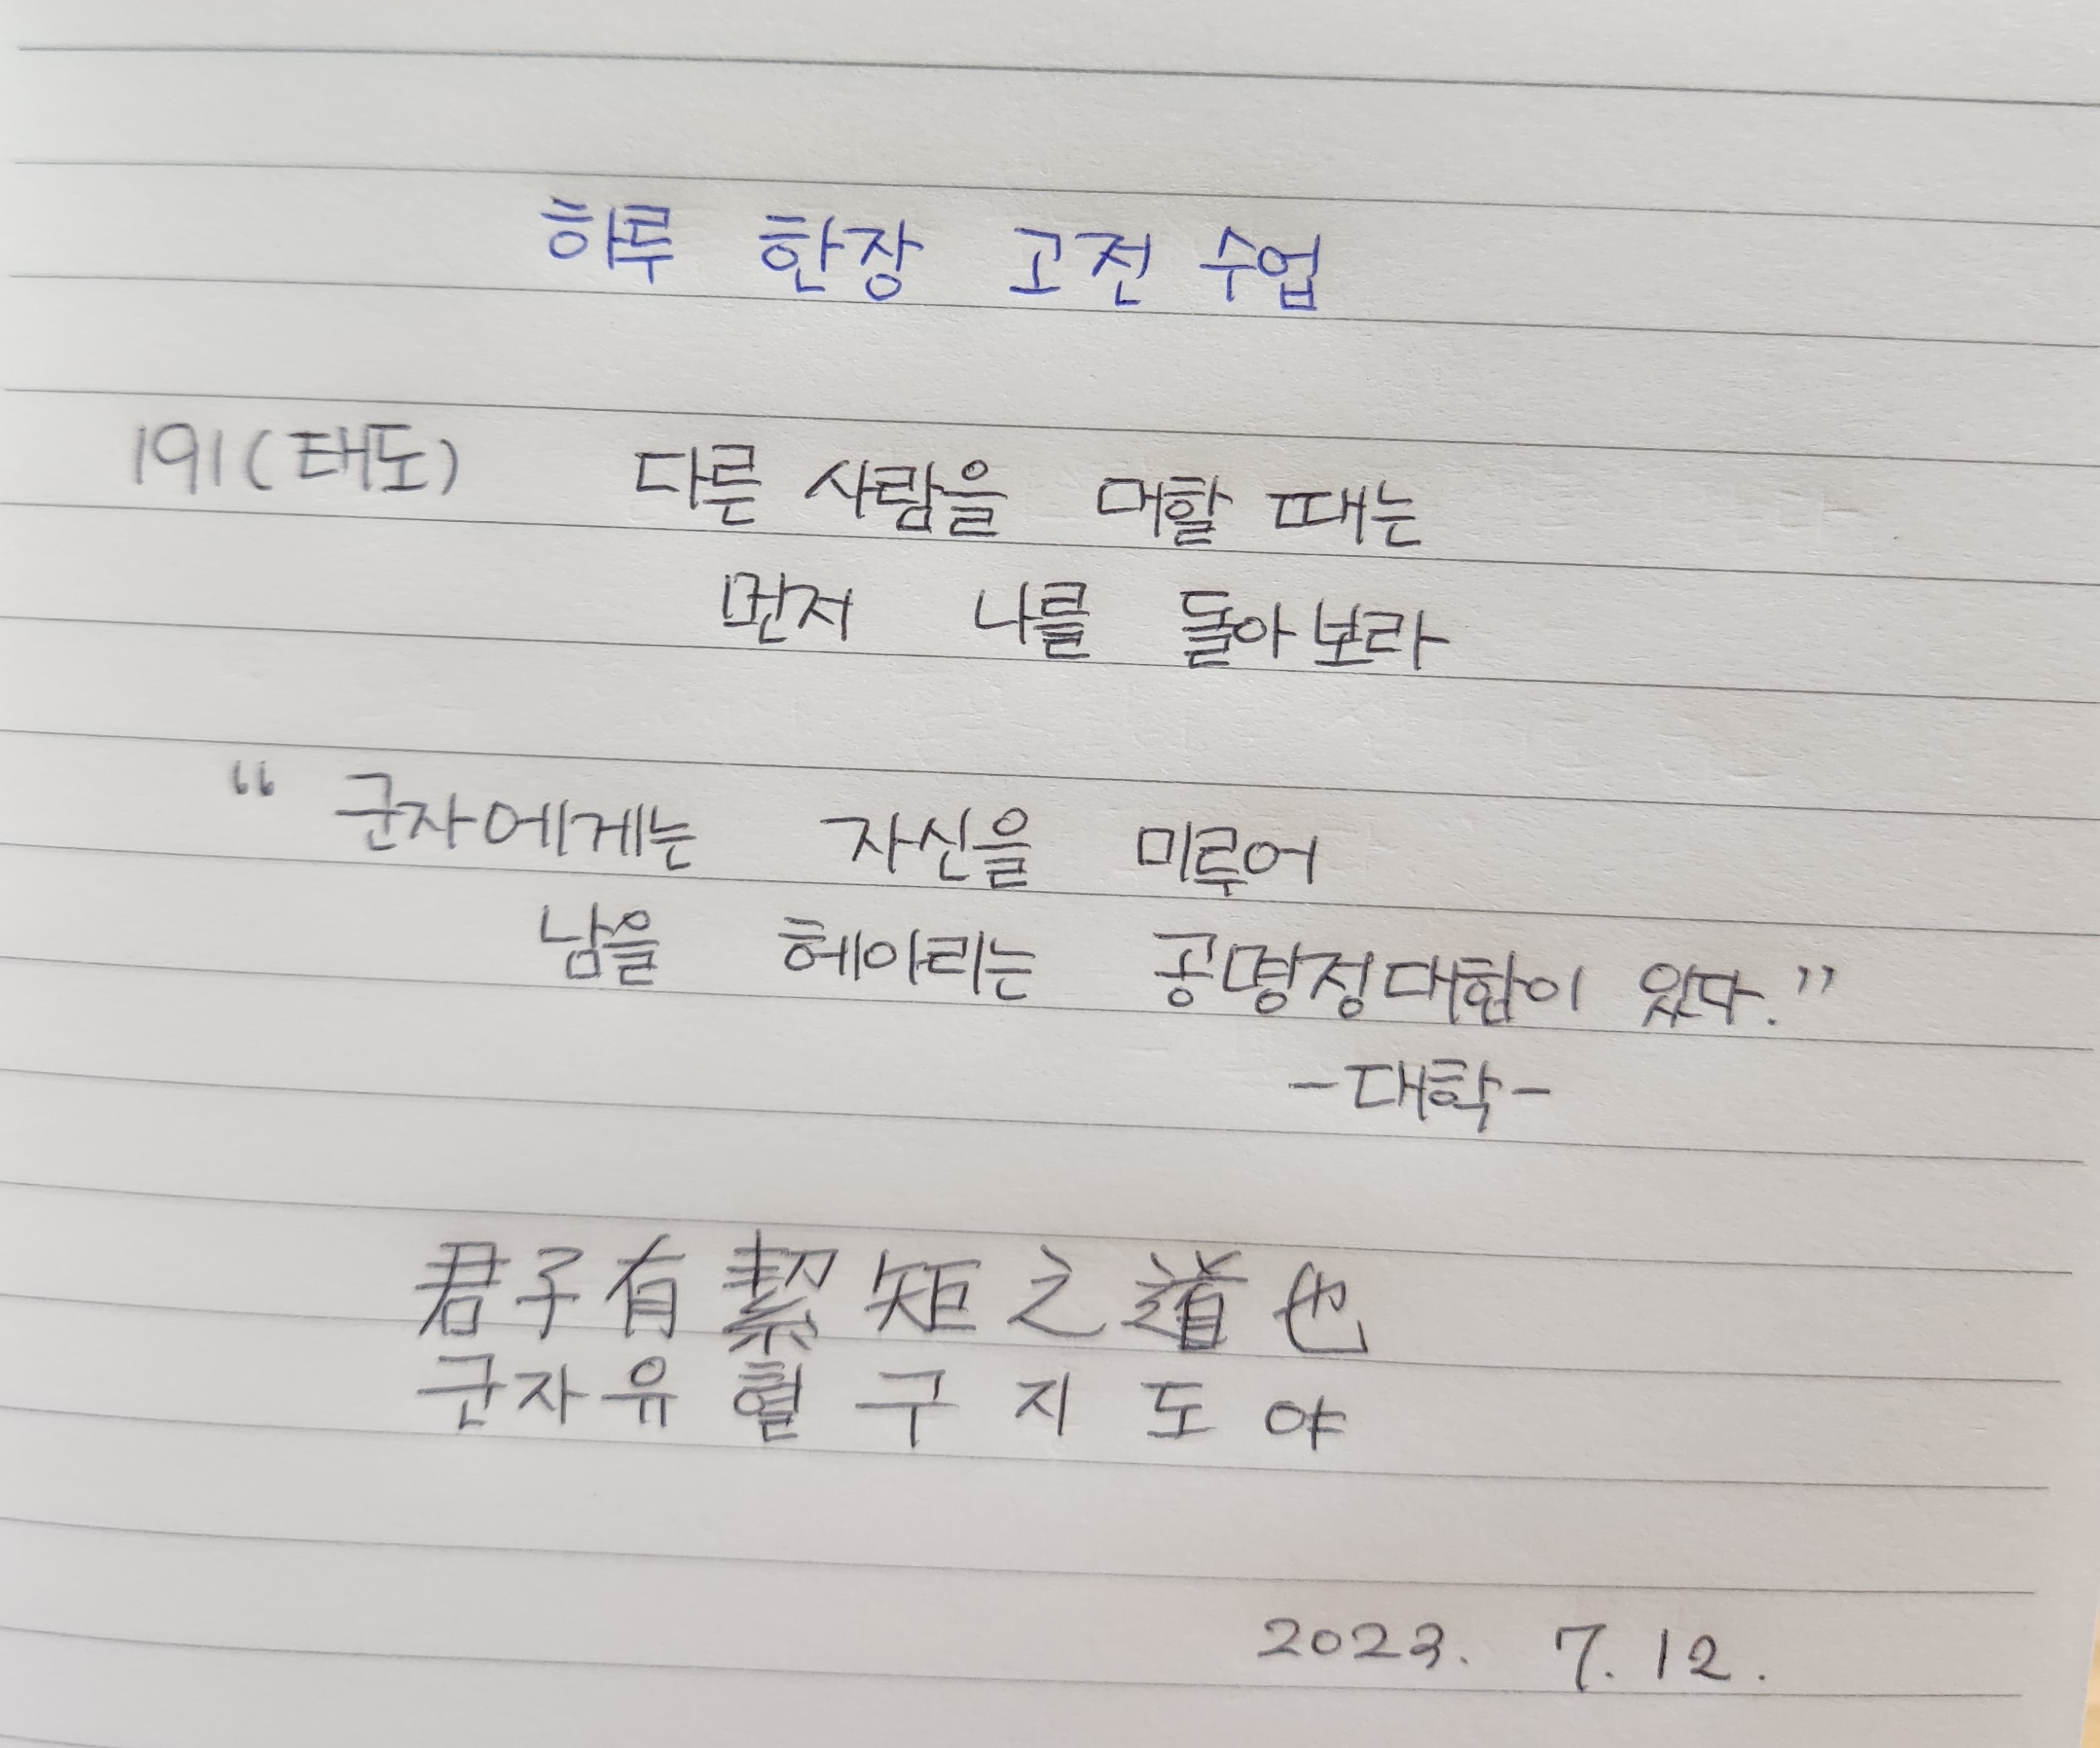 하루 한장 고전 수업
191(태도) 다른 사람을 대할 때는
먼저 나를 돌아보라
“군자에게는 자신을 미루어
남을 헤아리는 공명정대함이 있다.”
-대학-
君子有絜矩之道也
군자유혈구지도야
2023. 7. 12.